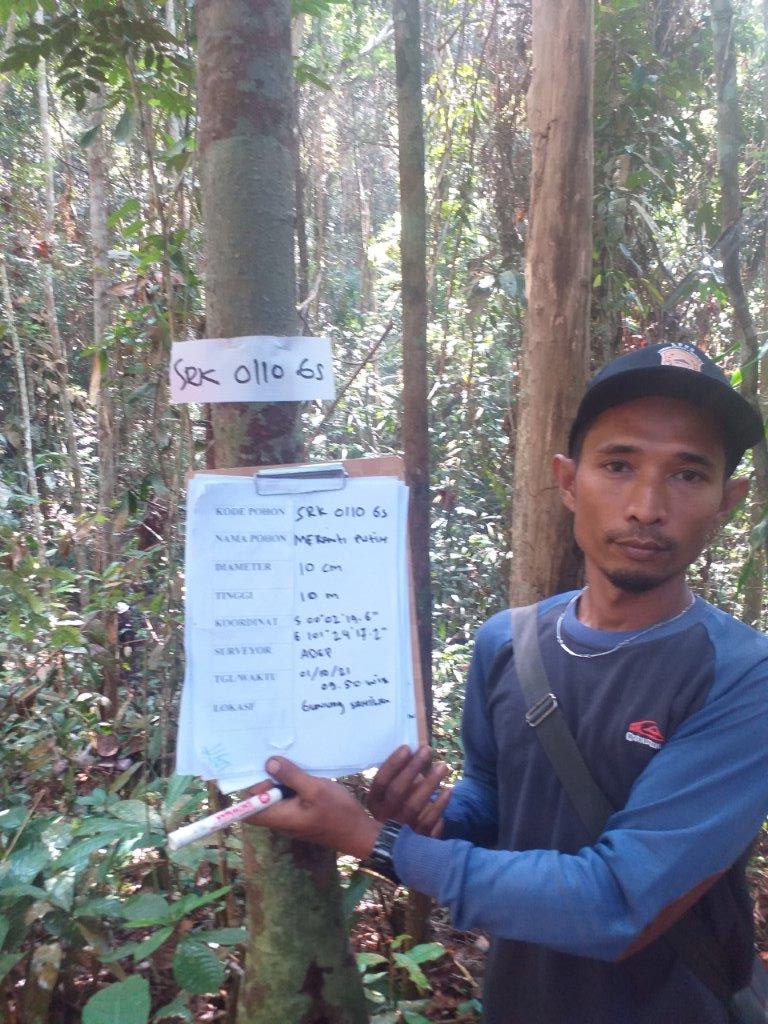 SRK 0110 Gs
KODE POHON SRK 0110 Gs
NAMA POHON MERANTI PUTIH
DIAMETER 10 cm
TINGGI 10 m
KOORDINAT S 00°02'19.6"
E 101°29'17.2"
SURVEYOR ADEP
TGL/WAKTU 01/10/21
09.50 WIB
LOKASI GUNUNG SAHILAN